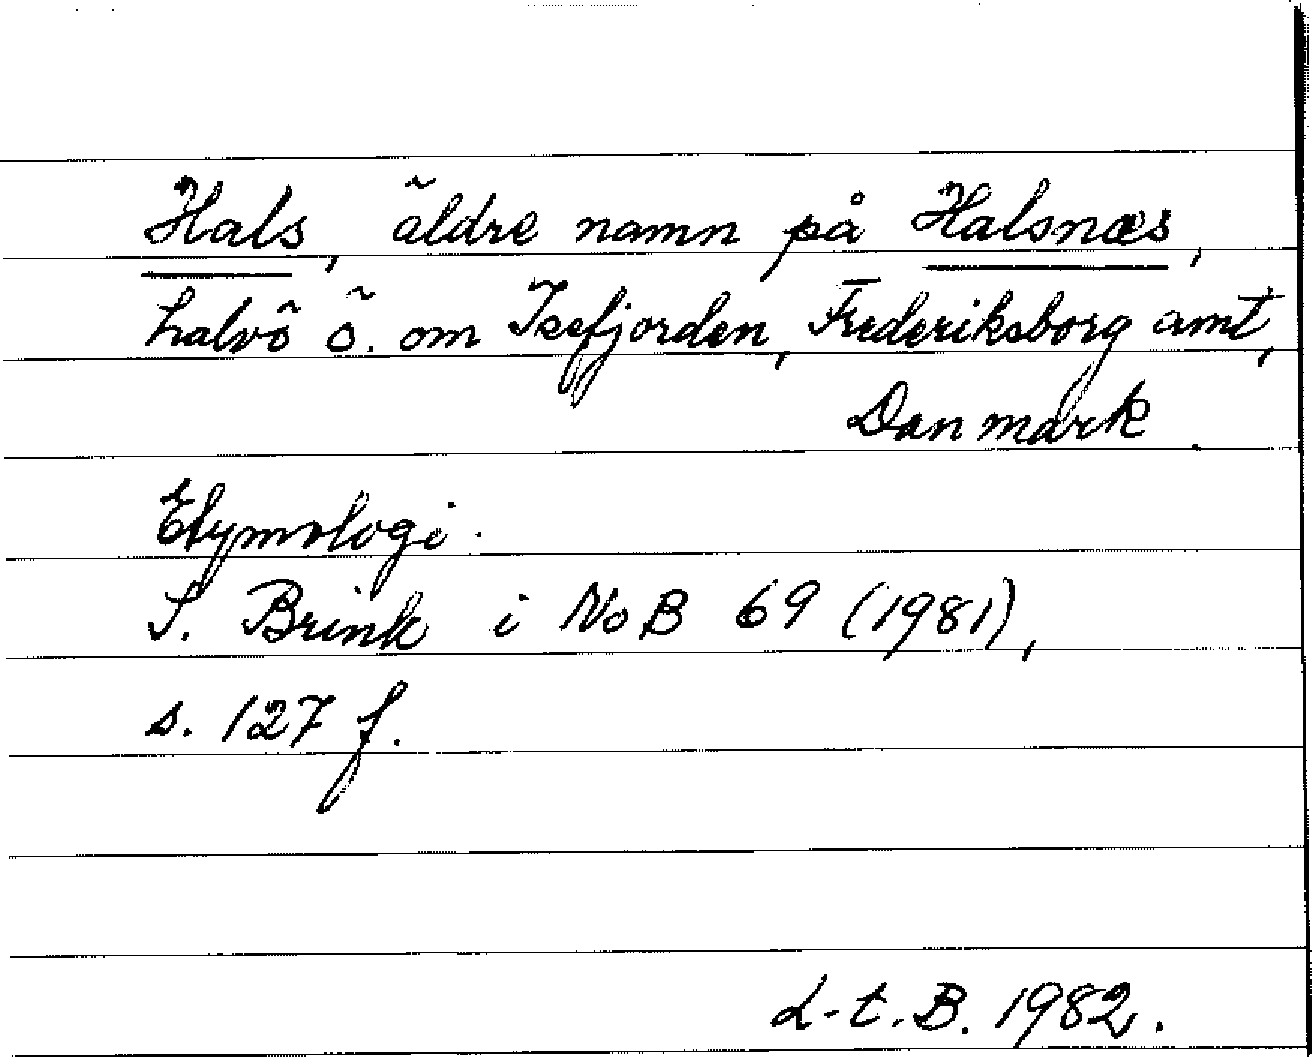 Hals, äldre namn på Halsnæs,
halvö ö. om Isefjorden, Frederiksborg amt,
Danmark.
Etymologi.
S. Brink i NoB 69 (1981),
s. 127 f.
L-t. B. 1982.